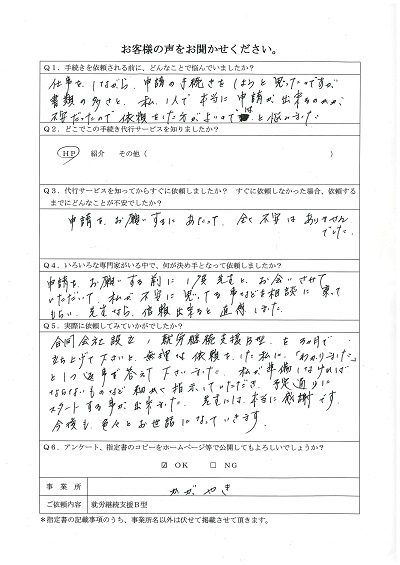 お客様の声をお聞かせください。
Q1．手続きを依頼される前に、どんなことで悩んでいましたか？
仕事をしながら、申請の手続きをしようと思ったのですが
書類の多さと、私、1人で本当に申請が出来るのか、
不安だったので依頼をした方がよいのではと悩みました
Q2．どこでこの手続き代行サービスを知りましたか？
HP 紹介 その他（ ）
Q3．代行サービスを知ってからすぐに依頼しましたか？ すぐに依頼しなかった場合、依頼する
までにどんなことが不安でしたか？
申請を、お願いするにあたって、全く不安はありません
でした。
Q4．いろいろな専門家がいる中で、何が決め手となって依頼しましたか？
申請を、お願いする前に1度先生と、お会いさせて
いただいて、私が不安に思ってる事などを相談に乗って
もらい、先生なら、依頼出来ると直感しました。
Q5．実際に依頼してみていかがでしたか？
合同会社設立、就労継続支援B型、を3ヵ月で
立ち上げて下さいと、無理な依頼をした私に、「わかりました」
と1つ返事で答えて下さいました。私が準備しなければ
ならないものなど細かく指示していただき、予定通りに
スタートする事が出来ました。先生には、本当に感謝です。
今後も、色々とお世話になっていきます。
Q6．アンケート、指定書のコピーをホームページ等で公開してもよろしいでしょうか？
☑ OK □ NG
事業所 かがやき
ご依頼内容 就労継続支援B型
＊指定書の記載事項のうち、事業所名以外は伏せて掲載させて頂きます。